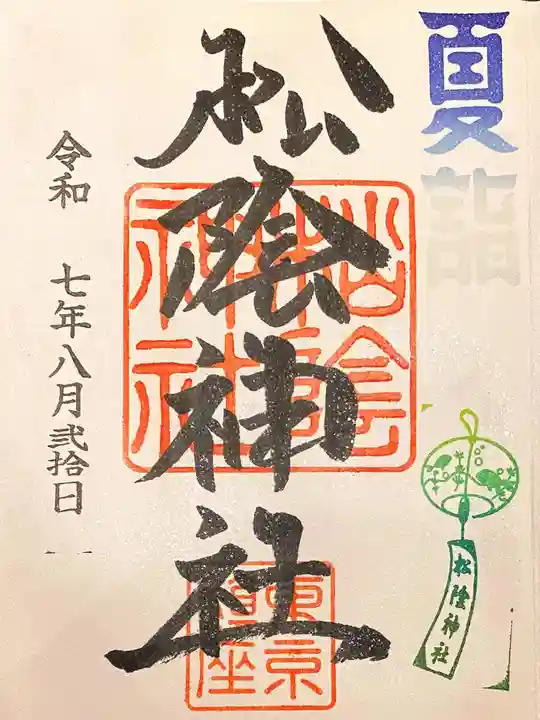 夏詣
松陰神社
松陰神社
松陰神社
東京
鎮座
令和 七年八月弐拾日